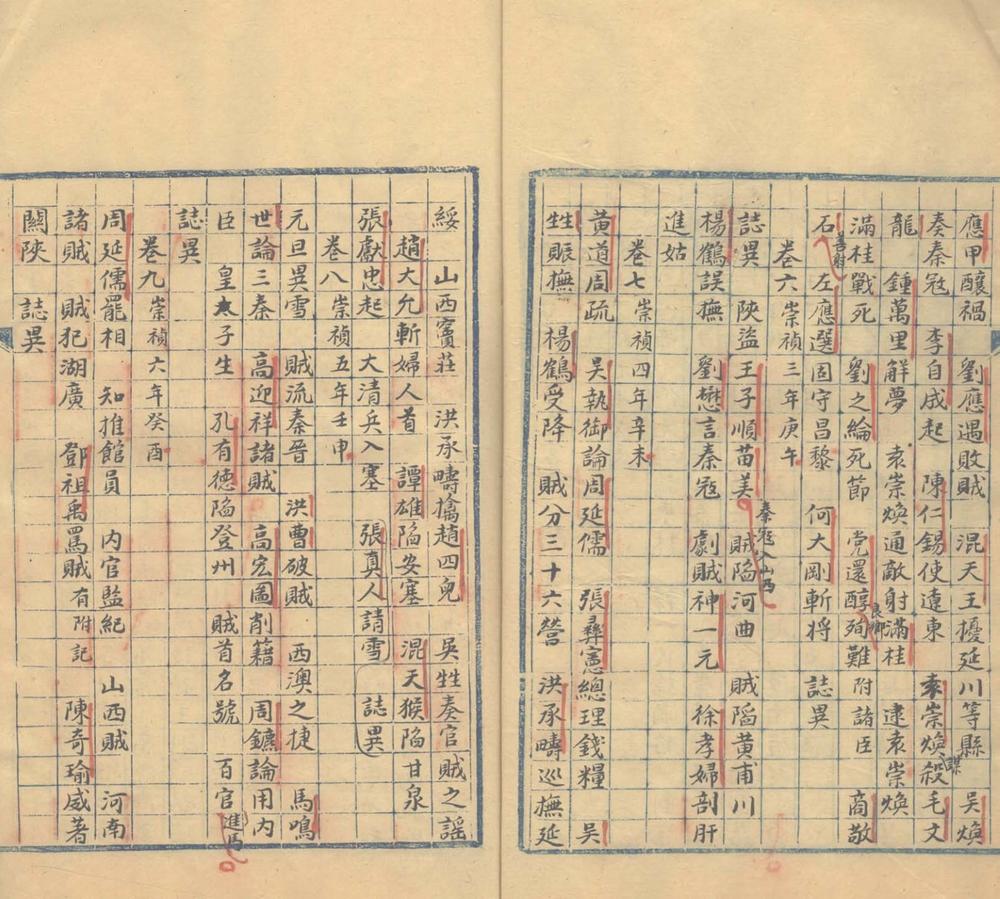 應甲釀禍 劉應遇敗賊 混天王擾延川等縣 吳煥
奏秦寇 李自成起 陳仁錫使遼東 袁崇煥謀殺毛文
龍 鍾萬里解夢 袁崇煥通敵射滿桂 逮袁崇煥
滿桂戰死 劉之綸死節 党還醇良鄉殉難附諸臣 商敬
石善射 左應選固守昌黎 何大剛斬將 誌異
卷六崇禎三年庚午
誌異 陝盜王子順苗美 秦寇入山西 賊陷河曲 賊陷黃甫川
楊鶴誤撫 劉懋言秦寇 劇賊神一元 徐孝婦剖肝
進姑
卷七崇禎四年辛未
黃道周疏 吳執御論周延儒 張彞憲總理錢糧 吳
甡賑撫 楊鶴受降 賊分三十六營 洪承疇巡撫延
綏 山西竇莊 洪承疇擒趙四兒 吳甡奏官賊之謠
趙大允斬婦人首 譚雄陷安塞 混天猴陷甘泉
張獻忠起 大清兵入塞 張真人請雪 誌異
卷八崇禎五年壬申
元旦異雪 賊流秦晉 洪曹破賊 西澳之捷 馬鳴
世論三秦 高迎祥諸賊 高宏圖削籍 周鑣論用內
臣 皇子生 孔有德陷登州 賊首名號 百官進馬
誌異
卷九崇禎六年癸酉
周延儒罷相 知推館員 內官監紀 山西賊 河南
諸賊 賊犯湖廣 鄧祖禹罵賊有附記 陳奇瑜威著
關陝 誌異